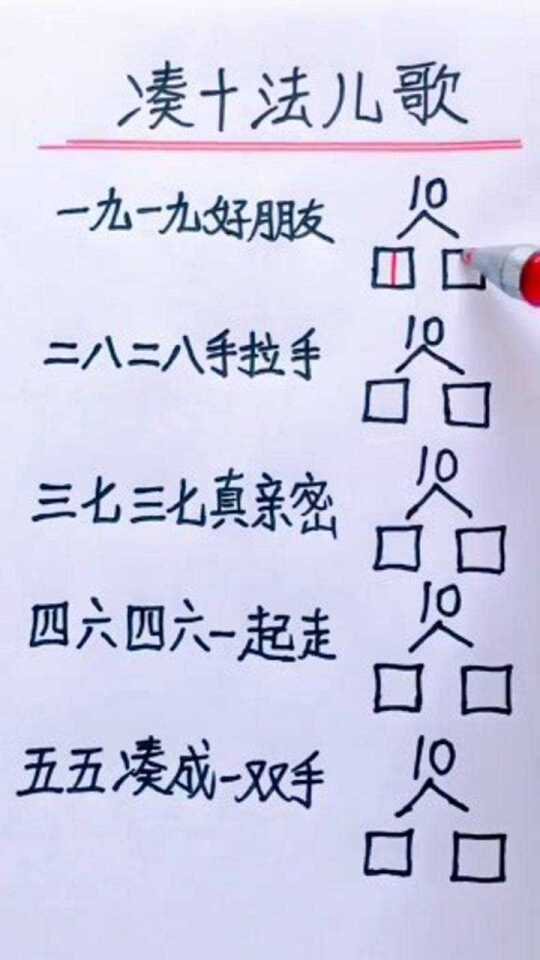 凑十法儿歌
一九一九好朋友 10
1
二八二八手拉手 10
三七三七真亲密 10
四六四六一起走 10
五五凑成一双手 10